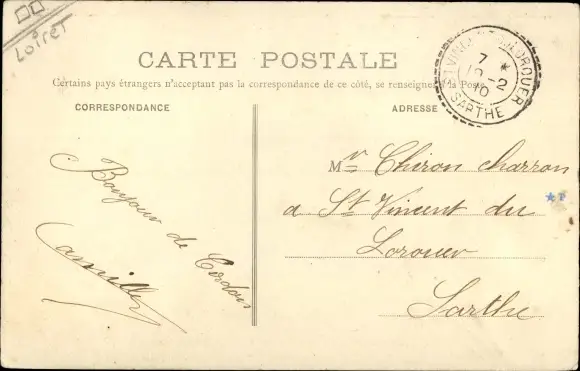 LOIRET
CARTE POSTALE
Certains pays étrangers n'acceptant pas la correspondance de ce côté, se renseigner à la Poste
CORRESPONDANCE
ADRESSE
Bonjour de
Camille
Mr Chiron charron
a St Vincent du
Lorouer
Sarthe
ST VINCENT DU LOROUER
7
2
10
SARTHE